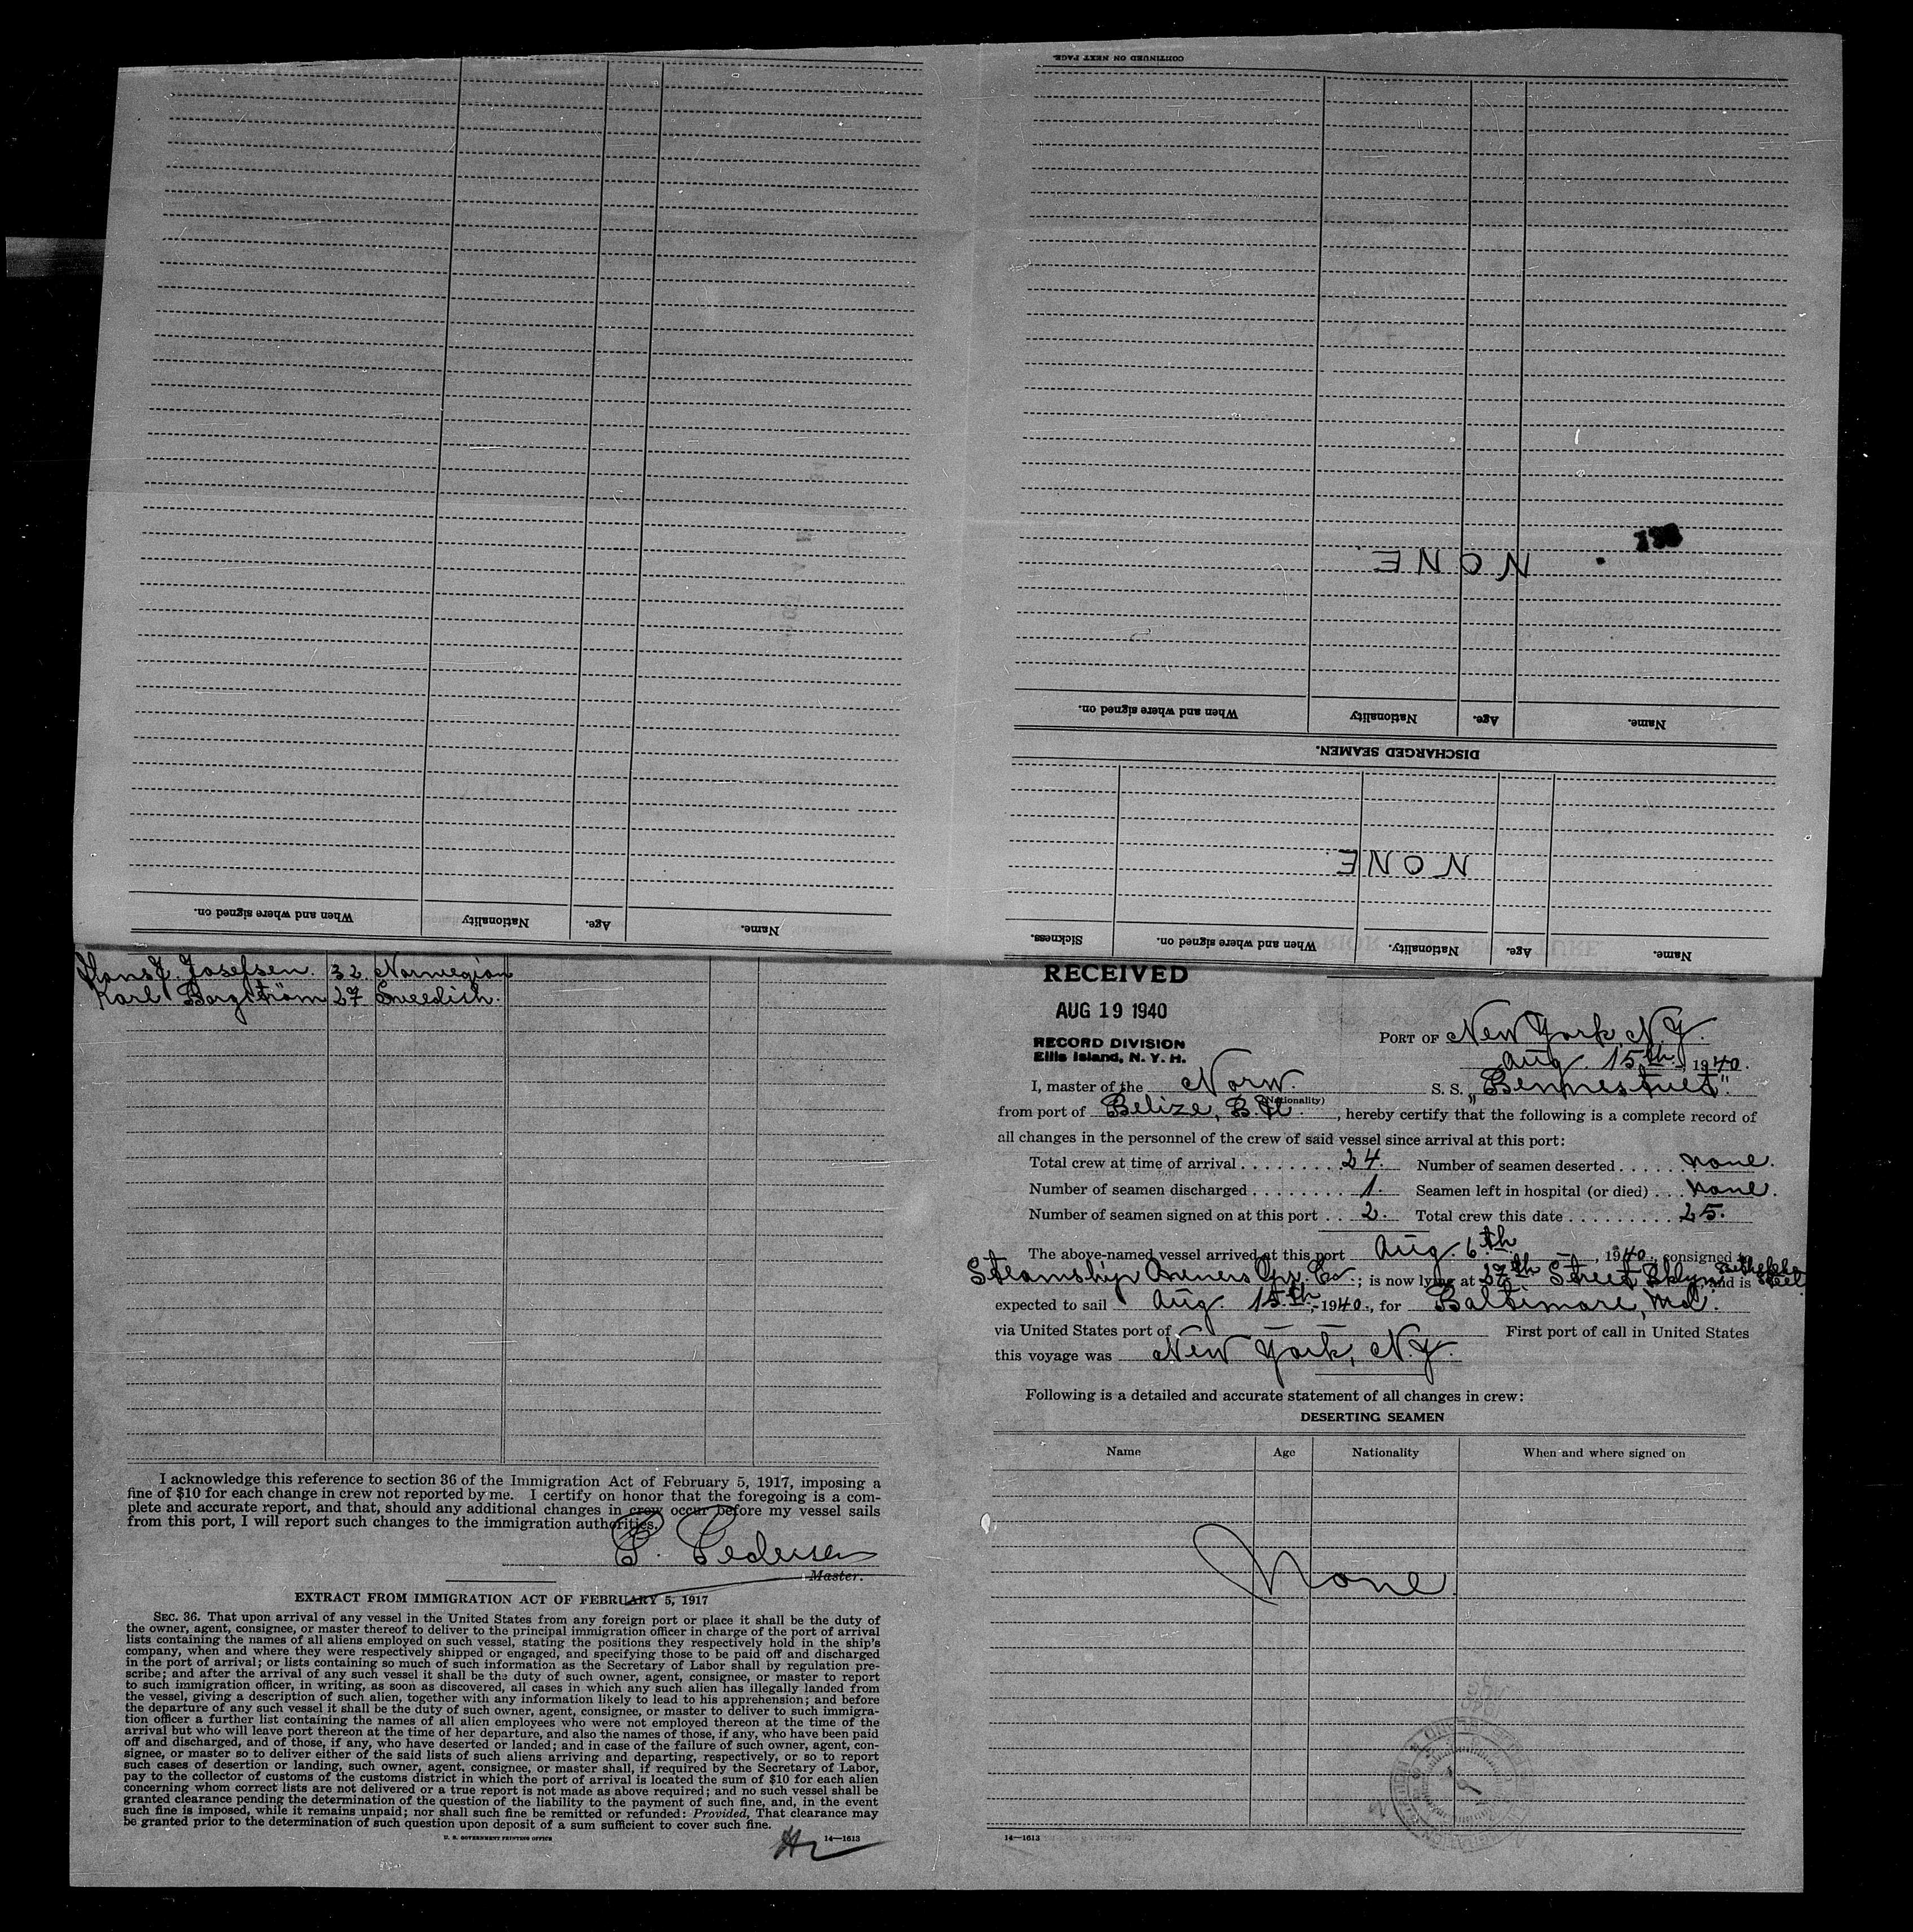 CONTINUED ON NEXT PAGE.
NONE
Name.
Age.
Nationality
When and where signed on.
DISCHARGED SEAMEN.
NONE
Name.
Age.
Nationality.
When and where signed on.
Sickness.
Name.
Age.
Nationality
When and where signed on.
Hans J. Josefsen. 32 Norwegian
Karl Borgström 27 Swedish.
I acknowledge this reference to section 36 of the Immigration Act of February 5, 1917, imposing a
fine of $10 for each change in crew not reported by me. I certify on honor that the foregoing is a com-
plete and accurate report, and that, should any additional changes in crew occur before my vessel sails
from this port, I will report such changes to the immigration authorities.
P. Pedersen
Master.
EXTRACT FROM IMMIGRATION ACT OF FEBRUARY 5, 1917
SEC. 36. That upon arrival of any vessel in the United States from any foreign port or place it shall be the duty of
the owner, agent, consignee, or master thereof to deliver to the principal immigration officer in charge of the port of arrival
lists containing the names of all aliens employed on such vessel, stating the positions they respectively hold in the ship's
company, when and where they were respectively shipped or engaged, and specifying those to be paid off and discharged
in the port of arrival; or lists containing so much of such information as the Secretary of Labor shall by regulation pre-
scribe; and after the arrival of any such vessel it shall be the duty of such owner, agent, consignee, or master to report
to such immigration officer, in writing, as soon as discovered, all cases in which any such alien has illegally landed from
the vessel, giving a description of such alien, together with any information likely to lead to his apprehension; and before
the departure of any such vessel it shall be the duty of such owner, agent, consignee, or master to deliver to such immigra-
tion officer a further list containing the names of all alien employees who were not employed thereon at the time of the
arrival but who will leave port thereon at the time of her departure, and also the names of those, if any, who have been paid
off and discharged, and of those, if any, who have deserted or landed; and in case of the failure of such owner, agent, con-
signee, or master so to deliver either of the said lists of such aliens arriving and departing, respectively, or so to report
such cases of desertion or landing, such owner, agent, consignee, or master shall, if required by the Secretary of Labor,
pay to the collector of customs of the customs district in which the port of arrival is located the sum of $10 for each alien
concerning whom correct lists are not delivered or a true report is not made as above required; and no such vessel shall be
granted clearance pending the determination of the question of the liability to the payment of such fine, and, in the event
such fine is imposed, while it remains unpaid; nor shall such fine be remitted or refunded: Provided, That clearance may
be granted prior to the determination of such question upon deposit of a sum sufficient to cover such fine.
U. S. GOVERNMENT PRINTING OFFICE 14—1613
RECEIVED
AUG 19 1940
RECORD DIVISION
Ellis Island, N. Y. H.
PORT OF New York, N.Y.
Aug. 15th, 1940.
I, master of the Norw. S. S. „Bennestvet".
(Nationality)
from port of Belize, B.H., hereby certify that the following is a complete record of
all changes in the personnel of the crew of said vessel since arrival at this port:
Total crew at time of arrival . . . . . . . . 24. Number of seamen deserted . . . . . none.
Number of seamen discharged . . . . . . . . 1. Seamen left in hospital (or died) . . . none.
Number of seamen signed on at this port . . 2. Total crew this date . . . . . . . . . 25.
The above-named vessel arrived at this port Aug. 6th, 1940, consigned to
Steamship Owners Opr. Co.; is now lying at 27th Street Bklyn. Bethlehem Steel, and is
expected to sail Aug. 15th, 1940, for Baltimore, Md.
via United States port of — — First port of call in United States
this voyage was New York, N.Y.
Following is a detailed and accurate statement of all changes in crew:
DESERTING SEAMEN
Name Age Nationality When and where signed on
None.
14—1613